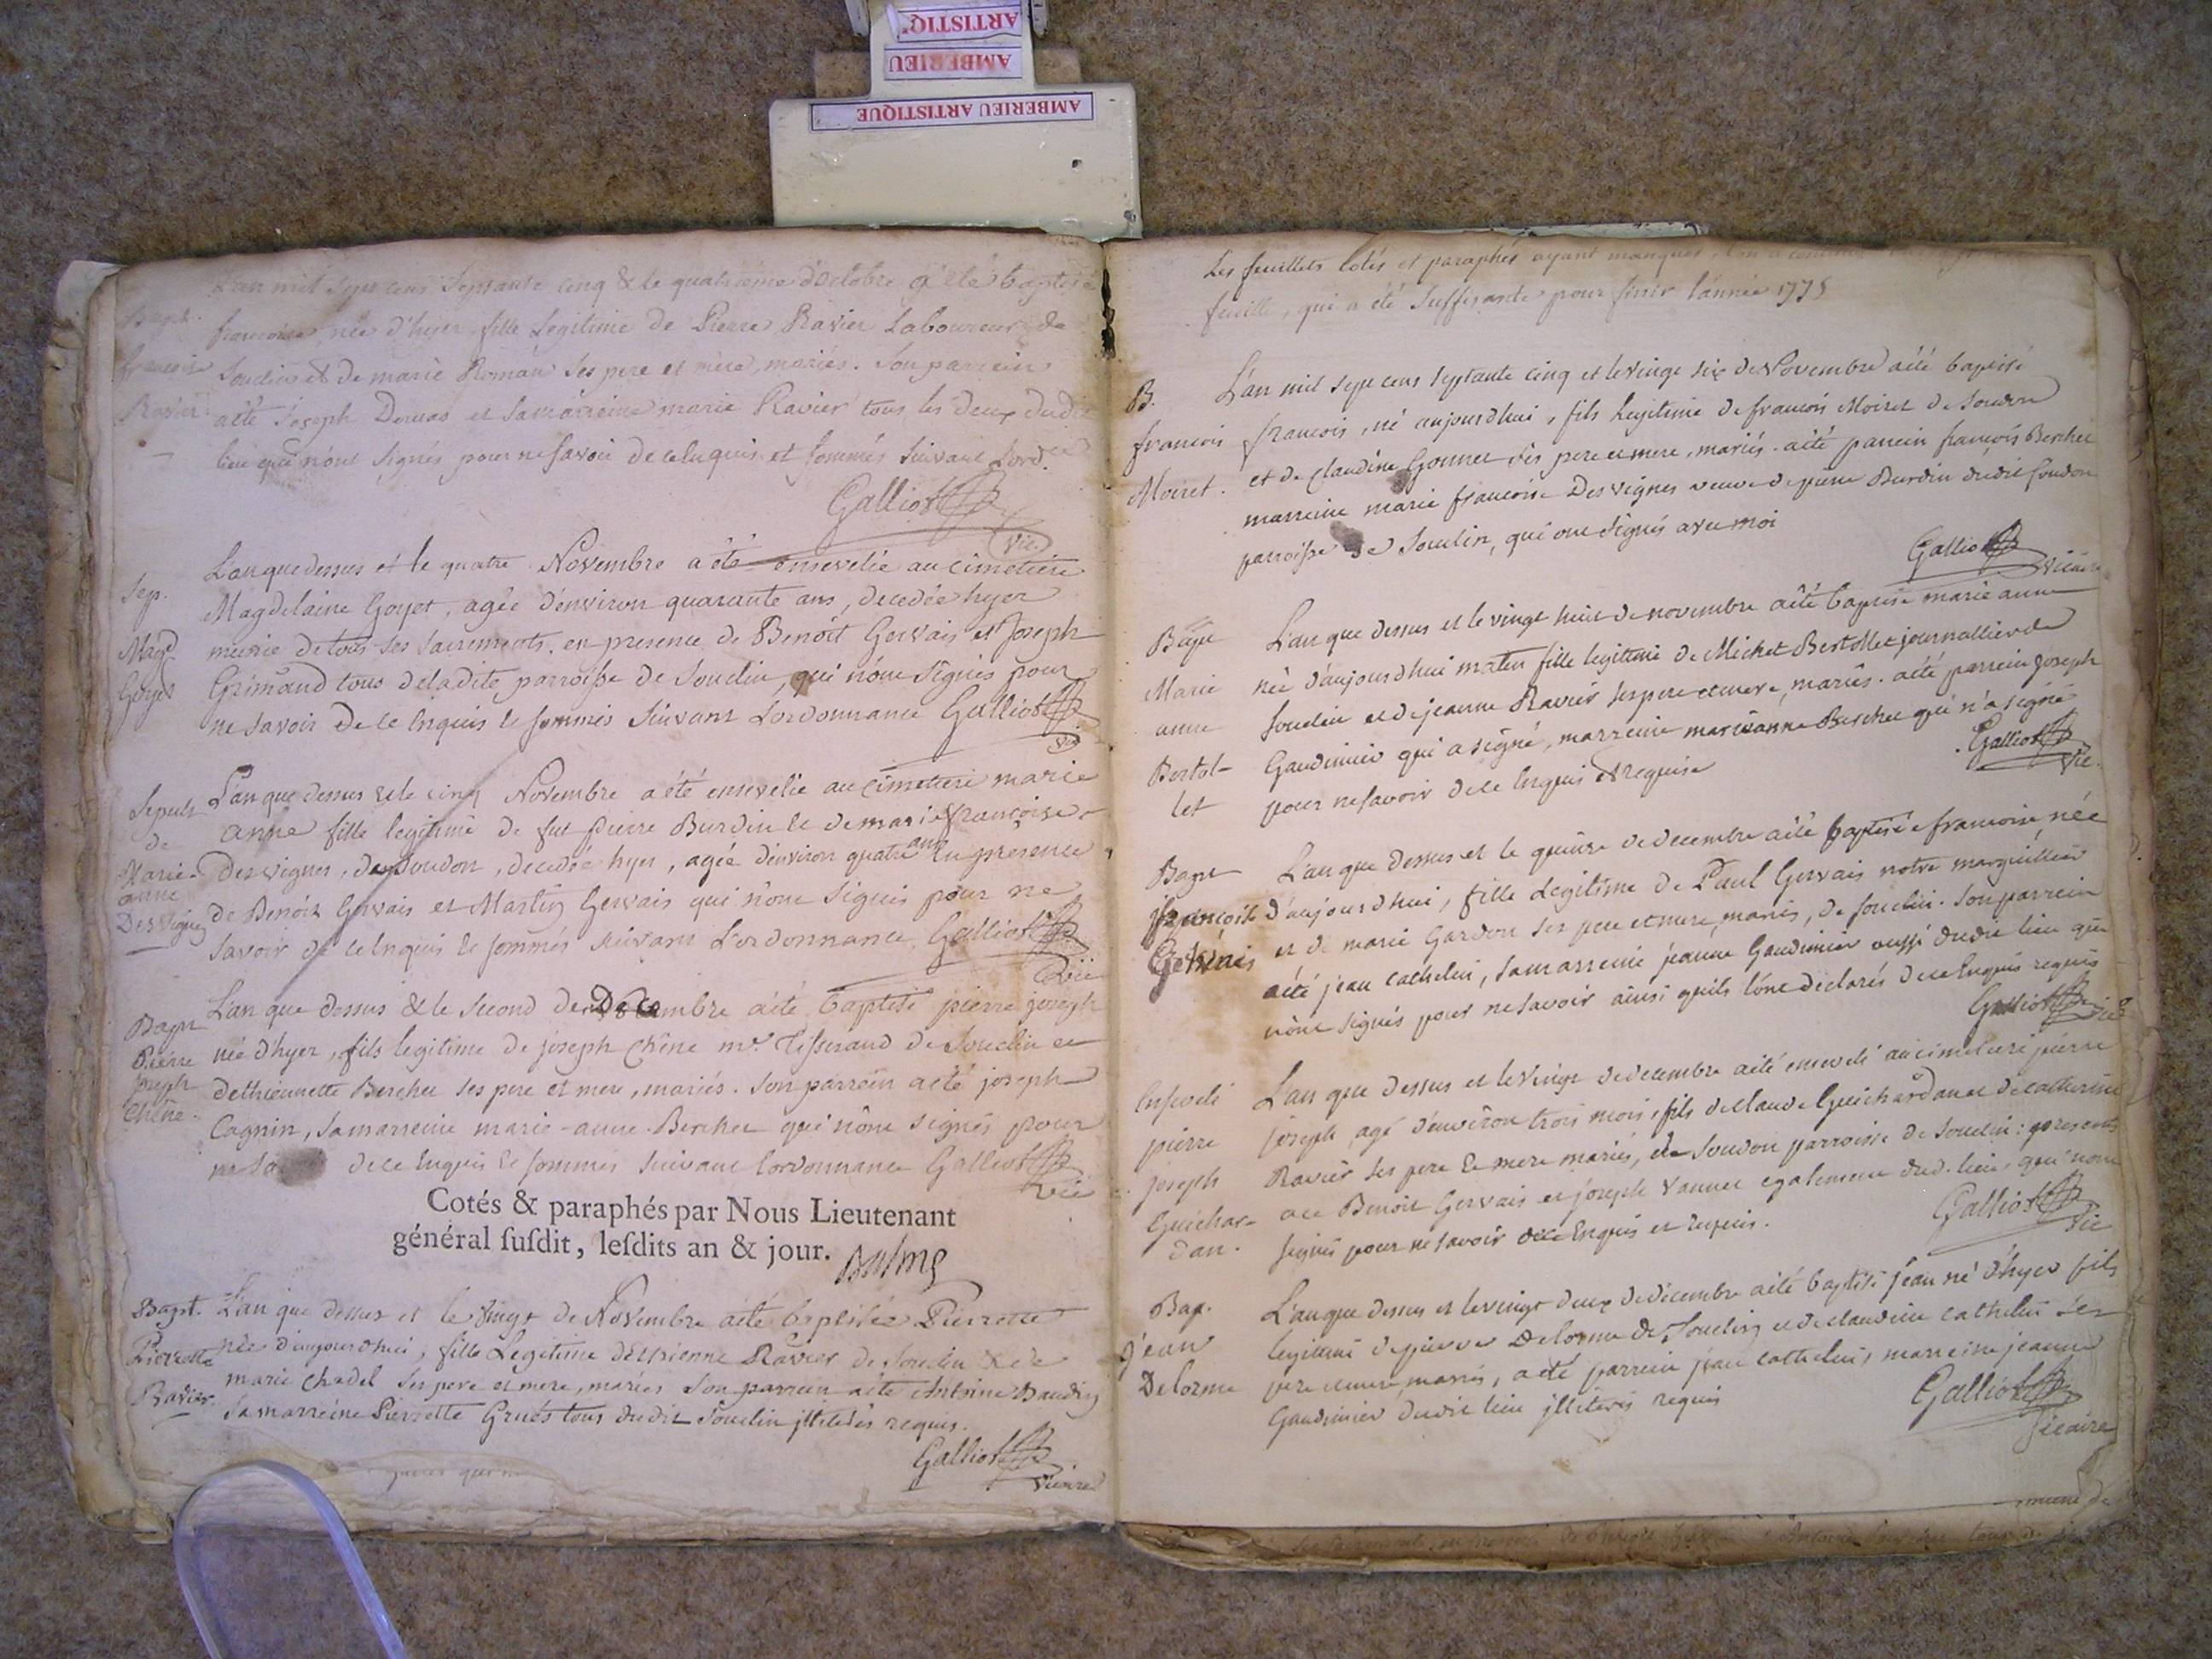 ARTISTIQ
AMBERIEU
AMBERIEU ARTISTIQUE
L'an mil sept cens septante cinq & le quatrieme d'octobre a été baptisée
Bapt.
francoise née d'hyer fille Legitime de Pierre Ravier Laboureur de
Souclin et de marie Roman ses pere et mere, mariés. Son parrein
Ravier
a été Joseph et sa marreine marie Ravier tous les deux dudit
lieu qui n'ont signés pour ne savoir de ce enquis et sommés suivant l'ord.ce
Galliot
vic.
L'an que dessus et le quatre Novembre a été ensevelie au cimetiere
Sep.
Magdelaine Goyet, agée d'environ quarante ans, decedée hyer
Magd.
munie de tous ses sacrements. en presence de Benoit Gervais et Joseph
Goyet
Grimand tous de ladite parroisse de Souclin, qui n'ont signés pour
ne savoir de ce enquis & sommés suivant L'ordonnance Galliot
vic
Sepult
L'an que dessus & le cinq Novembre a été ensevelie au cimetiere marie
de
anne fille legitime de fut pierre Burdin & de marie françoise
Marie
Desvignes, de Soudon, decedée hyer, agée d'environ quatre ans En presence
anne
Desvignes
de Benoit Gervais et Martin Gervais qui n'ont signés pour ne
savoir de ce enquis & sommés suivant L'ordonnance, Galliot
vic
L'an que dessus & le second de Decembre a été baptisé pierre joseph
Bapt
Pierre
né d'hyer, fils legitime de joseph Chêne m.e Tisserand de Souclin et
joseph
d'ethiennette Bercher ses pere et mere, mariés. Son parrein a été joseph
Chêne.
Cagnin, sa marreine marie-anne Bercher qui n'ont signés pour
ne de ce enquis & sommés suivant l'ordonnance Galliot
vic
Cotés & paraphés par Nous Lieutenant
général susdit, lesdits an & jour.
Balme
Bapt.
L'an que dessus et le vingt de Novembre a été baptisée Pierrette
Pierrette
née d'aujourdhui, fille Legitime d'Ethienne Ravier de Souclin & de
marie Chadel ses pere et mere, mariés son parrein a été Antoine Baudin
Ravier.
sa marreine Pierrette Grués tous dudit Souclin illiterés requis.
Galliot
vicaire
Les feuillets cotés et paraphés ayant manqués, l'on a
feuille, qui a été suffisante pour finir l'année 1775
B.
L'an mil sept cens septante cinq et le vingt six de Novembre a été baptisé
francois
francois, né aujourdhui, fils legitime de francois Moiret de Soudon
Moiret.
et de Claudine Gonnet ses pere et mere, mariés. a été parrein françois Bercher
marreine marie francoise Desvignes veuve de pierre Burdin dudit soudon
parroisse de Souclin, qui ont signés avec moi
Galliot
vicaire
Bapt
L'an que dessus et le vingt huit de novembre a été baptisée marie anne
Marie
née d'aujourdhui matin fille legitime de Michel Bertollet journallier de
anne
souclin et de jeanne Ravier ses pere et mere, mariés. a été parrein joseph
Bertol-
Gaudinier qui a signé, marreine marieanne Bercher qui n'a signé
let
pour ne savoir de ce enquis & requise
Galliot
vic.
Bapt
L'an que dessus et le quinze de decembre a été baptisée francoise, née
françoise
d'aujourdhui, fille Legitime de Paul Gervais notre marguillier
Gervais
et de marie Gardon ses pere et mere, mariés, de souclin. Son parrein
a été jean Cathelin, sa marreine jeanne Gaudinier aussi dudit lieu qui
n'ont signés pour ne savoir ainsi qu'ils l'ont declarés de ce enquis requis
Galliot
Enseveli
L'an que dessus et le vingt de decembre a été enseveli au cimetiere pierre
pierre
joseph, agé d'environ trois mois, fils de claude Guichardan et de catherine
joseph
Ravier ses pere & mere mariés, de Soudon parroisse de Souclin: presents
Guichar-
Benoit Gervais et joseph Vannet egalement dud. lieu, qui n'ont
dan.
signés pour ne savoir de ce enquis et requis.
Galliot
vic
Bap.
L'an que dessus et le vingt deux de decembre a été baptisé jean né d'hyer fils
jean
legitime de pierre Delorme de Souclin et de claudine cathelin ses
Delorme
pere et mere, mariés, a été parrein jean cathelin, marreine jeanne
Gaudinier dudit lieu illiterés requis
Galliot
vicaire